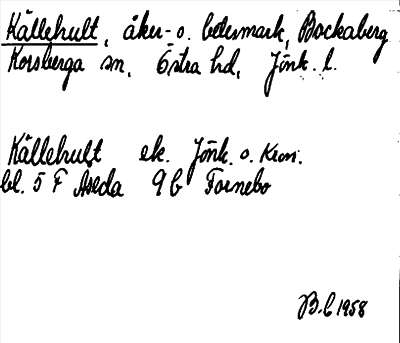 Källehult, åker- o. betesmark, Bockaberg
Korsberga sn, Östra hd, Jönk. l.
Källehult ek. Jönk. o. Kron.
bl. 5 F Åseda 9 b Fornebo
B.L 1958